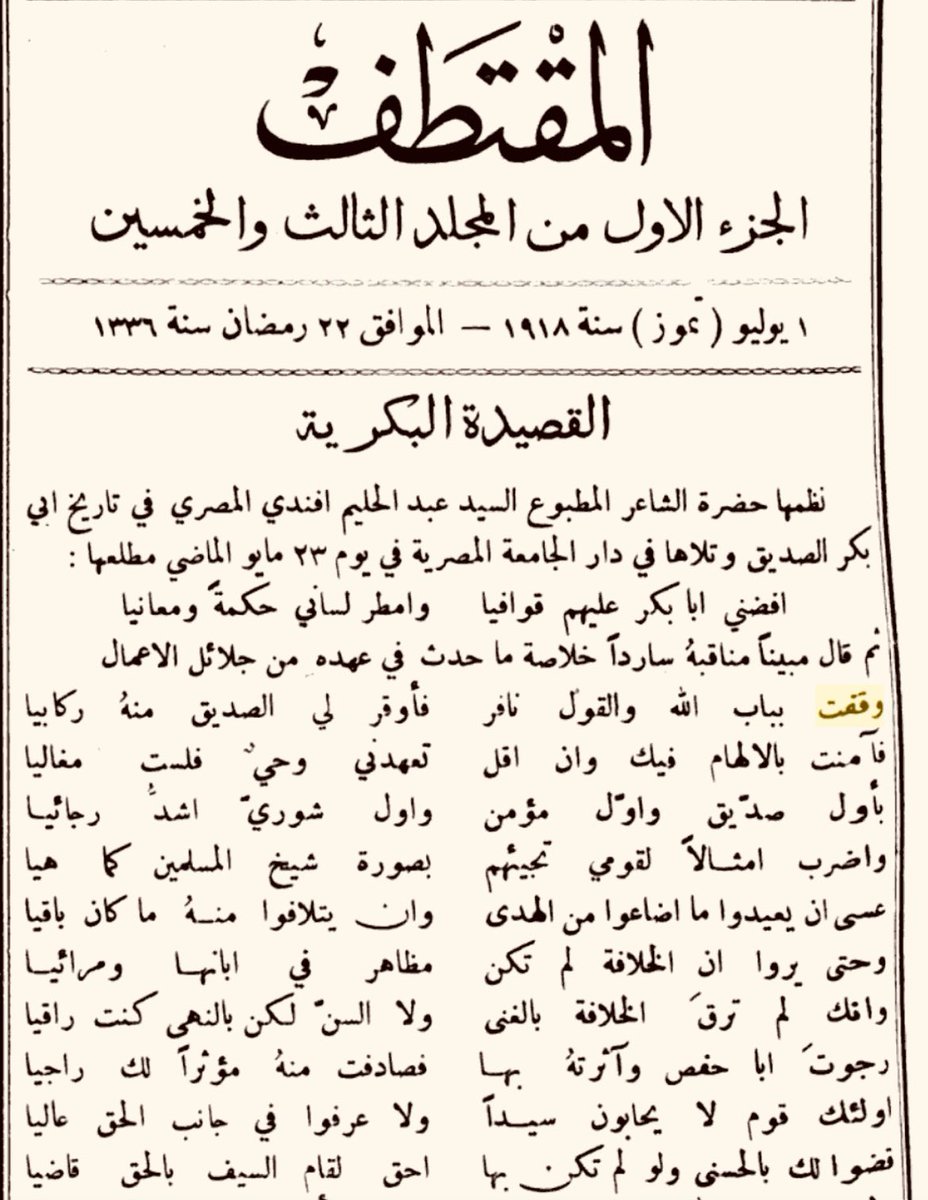 المقتطف
الجزء الاول من المجلد الثالث والخمسين
١ يوليو ( تموز ) سنة ١٩١٨ — الموافق ٢٢ رمضان سنة ١٣٣٦
القصيدة البكرية
نظمها حضرة الشاعر المطبوع السيد عبد الحليم افندي المصري في تاريخ ابي
بكر الصديق وتلاها في دار الجامعة المصرية في يوم ٢٣ مايو الماضي مطلعها :
افضني ابا بكر عليهم قوافيا وامطر لساني حكمةً ومعانيا
ثم قال مبيناً مناقبهُ سارداً خلاصة ما حدث في عهده من جلائل الاعمال
وقفت بباب الله والقول نافر فأوقر لي الصديق منهُ ركابيا
فآمنت بالالهام فيك وان اقل تعهدني وحيٌ فلست مغاليا
بأول صدّيق واوّل مؤمن واول شوريّ اشدُّ رجائيا
واضرب امثالاً لقومي تجيئهم بصورة شيخ المسلمين كما هيا
عسى ان يعيدوا ما اضاعوا من الهدى وان يتلافوا منهُ ما كان باقيا
وحتى يروا ان الخلافة لم تكن مظاهر في ابانها ومرائيا
وانك لم ترقَ الخلافة بالغنى ولا السنّ لكن بالنهى كنت راقيا
رجوتَ ابا حفص وآثرتهُ بها فصادفت منهُ مؤثراً لك راجيا
اولئك قوم لا يحابون سيداً ولا عرفوا في جانب الحق عاليا
قضوا لك بالحسنى ولو لم تكن بها احق لقام السيف بالحق قاضيا